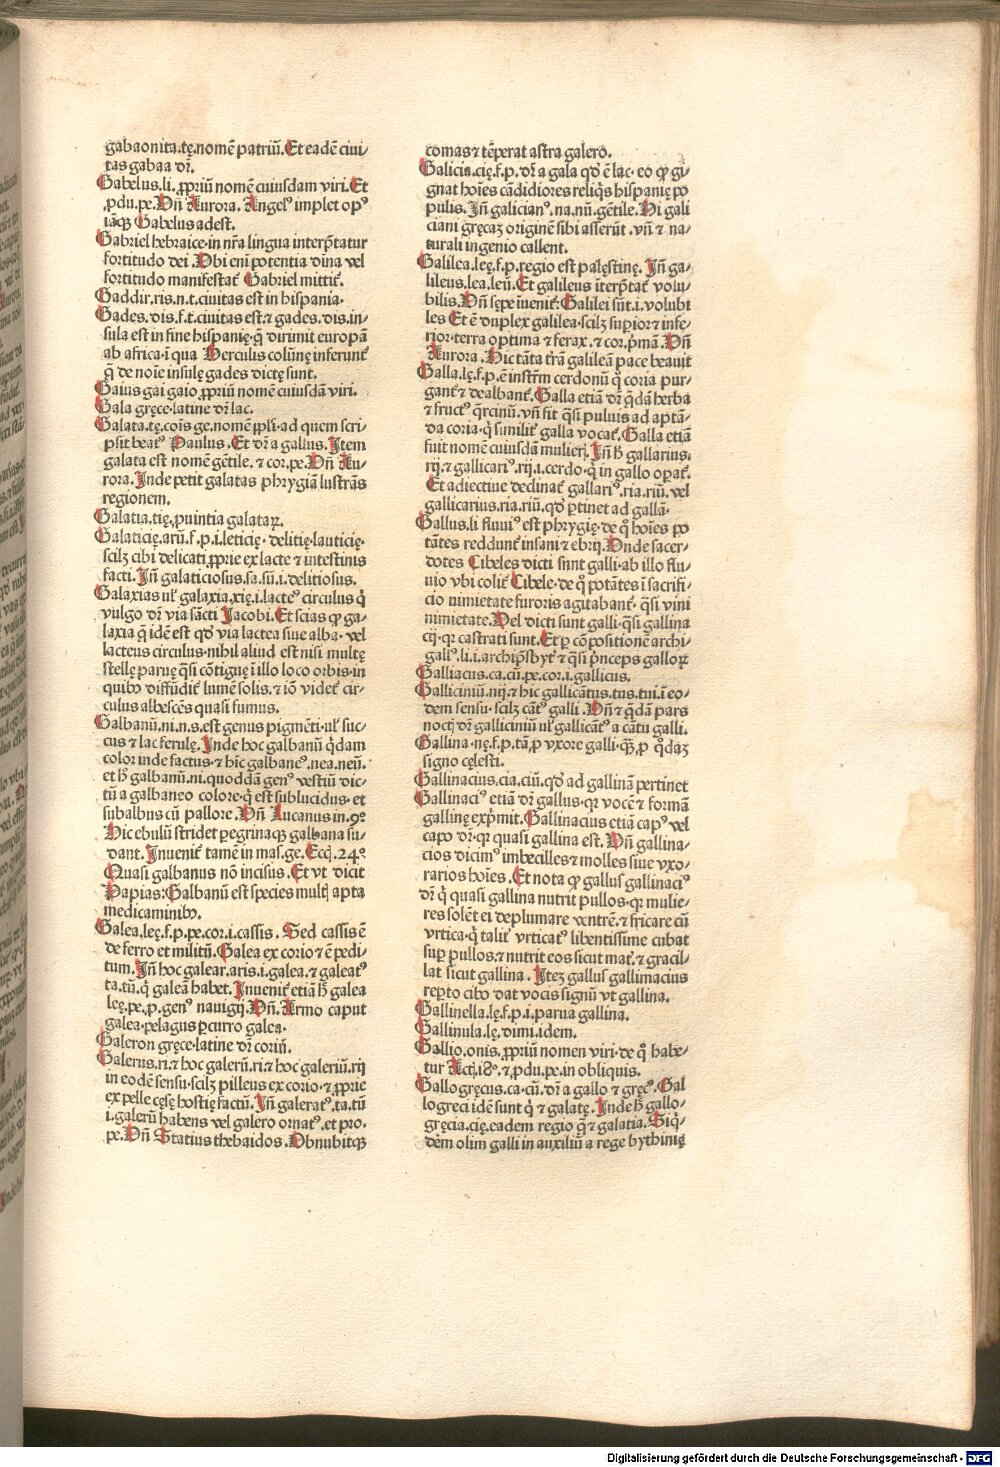 gabaonita.tę.nomē patriū.Et eadē ciui/
tas gabaa dr̄.
Gabelus.li.ꝓpriū nomē cuiusdam viri.Et
.ꝓdu.pe.Vn̄ Aurora. Angelꝰ implet opꝰ
iāqꝫ Gabelus adest.
Gabriel hebraice·in nr̄a lingua interp̄tatur
fortitudo dei.Vbi eni potentia dīna vel
fortitudo manifestat᷑ Gabriel mittit᷑.
Gaddir.ris.n.t.ciuitas est in hispania·
Gades.dis.f.t.ciuitas est.⁊ gades.dis.in/
sula est in fine hispanię·q̄ dirimit europā
ab africa·ī qua Hercules colūnę inferunt᷑
q̄ de noīe insulę gades dictę sunt.
Gaius gai gaio ꝓpriū nomē cuiusdā viri.
Gala gręce·latine dr̄ lac.
Galata.tę.cōis ge.nomē ppl̓i·ad quem scri/
psit beatꝰ Paulus.Et dr̄ a gallus.Item
galata est nomē gētile.⁊ cor.pe.Vn̄ Au/
rora.Inde petit galatas phrygiā lustrās
regionem.
Galatia.tię.ꝓuintia galataꝝ.
Galaticię.arū.f.p.i.leticię· delitię·lauticię·
scilꝫ cibi delicati ꝓprie ex lacte ⁊ intestinis
facti.In̄ galaticiosus.sa.sū.i.delitiosus.
Galaxias ul᷑ galaxia.xię.i.lacteꝰ circulus q̇
vulgo dr̄ via sācti Jacobi.Et scias ꝙ ga/
laxia q̄ idē est qd̓ via lactea siue alba· vel
lacteus circulus·nihil aliud est nisi multę
stellę paruę q̄si cōtiguę ī illo loco orbis·in
quibꝰ diffudit᷑ lumē solis.⁊ iō videt᷑ cir/
culus albescēs quasi fumus.
Galbanū.ni.n.s.est genus pigmēti·ul᷑ suc/
cus ⁊ lac ferulę.Inde hoc galbanū q̇dam
color inde factus·⁊ hic galbaneꝰ.nea.neū.
et h̓ galbanū.ni.quoddā genꝰ vestiū dic/
tū a galbaneo colore·q̇ est sublucidus· et
subalbus cū pallore.Vn̄ Lucanus in.9°
Hic ebulū stridet ꝑegrinaqꝫ galbana su/
dant.Inuenit᷑ tamē in mas.ge.Ecc̓i.24°
Quasi galbanus nō incisus.Et vt dicit
Papias:Galbanū est species multꝭ apta
medicaminibꝰ.
Galea.leę.f.p.pe.cor.i.cassis. Sed cassis ē
de ferro et militū.Galea ex corio ⁊ ē pedi/
tum.In̄ hoc galear.aris.i.galea.⁊ galeatꝰ
ta.tū.q̇ galeā habet.Inuenit᷑ etiā h̓ galea
leę.pe.p.genꝰ nauigij.Vn̄. Armo caput
galea·pelagus ꝑcurro galea·
Galeron gręce·latine dr̄ coriū.
Galerus.ri.⁊ hoc galerū.ri.⁊ hoc galeriū.rij
in eodē sensu·scilꝫ pilleus ex corio·⁊ ꝓprie
ex pelle cęsę hostię factū. In̄ galeratꝰ.ta.tū
.i.galerū habens vel galero ornatꝰ.et pro.
pe.Vn̄ Statius thebaidos.Obnubitqꝫ
comas ⁊ tēperat astra galero.
Galicia.cię.f.p. dr̄ a gala qd̓ ē lac· eo ꝙ gi/
gnat hoīes cādidiores reliq̇s hispanię po
pulis.In̄ galicianꝰ.na.nū.gētile.Hi gali
ciani gręcaꝫ originē sibi asserūt .vn̄ ⁊ na/
turali ingenio callent.
Galilea.leę.f.p.regio est palęstinę. In̄ ga/
lileus.lea.leū.Et galileus īterp̄tat᷑ volu/
bilis.Vn̄ sępe īuenit᷑:Galilei sūt.i.volubi
les Et ē duplex galilea·scilꝫ suꝑior ⁊ infe/
rior·terra optima ⁊ ferax.⁊ cor.pᷓmā.Vn̄
Aurora. Hic tāta tr̄ā galileā pace beauit
Galla.lę.f.p.ē instr̄m cerdonū q̇ coria pur/
gant᷑ ⁊ dealbant᷑. Galla etiā dr̄ q̄dā herba
⁊ fructꝰ q̄rcinū.vn̄ fit q̄si puluis ad aptā/
da coria·q̇ similit᷑ galla vocat᷑.Galla etiā
fuit nomē cuiusdā mulierꝭ.In̄ h̓ gallarius.
rij.⁊ gallicariꝰ.rij.i.cerdo·q̇ in gallo oꝑat᷑.
Et adiectiue declinat᷑ gallariꝰ.ria.riū. vel
gallicarius.ria.riū.qd̓ ꝑtinet ad gallā·
Gallus.li fluuiꝰ est phrygię·de q̇ hoīes po
tātes reddunt᷑ insani ⁊ ebrij.Vnde sacer/
dotes Cibeles dicti sunt galli·ab illo flu/
uio vbi colit᷑ Cibele·de q̇ potātes ī sacrifi/
cio nimietate furoris agitabant᷑· q̄si vini
nimietate.Vel dicti sunt galli·q̄si gallina
cij·qꝛ castrati sunt.Et ꝑ cōpositionē archi/
gallꝰ.li.i.archip̄sbyt᷑ ⁊ q̄si p̄nceps galloꝝ
Galliacus.ca.cū.pe.cor.i.gallicus.
Galliciniū.nij.⁊ hic gallicātus.tus.tui.ī eo/
dem sensu· scilꝫ cātꝰ galli. Vn̄ ⁊ q̄dā pars
noctꝭ dr̄ galliciniū ul᷑ gallicātꝰ a cātu galli.
Gallina·nę.f.p.tā ꝓ vxore galli·qꝫ ꝓ q̄daꝫ
signo cęlesti.
Gallinacius.cia.ciū.qd̓ ad gallinā pertinet
Gallinaciꝰ etiā dr̄ gallus·qꝛ vocē ⁊ formā
gallinę exp̄mit. Gallinacius etiā capꝰ vel
capo dr̄·qꝛ quasi gallina est. Vn̄ gallina/
cios dicimꝰ imbecilles ⁊ molles siue vxo/
rarios hoīes. Et nota ꝙ gallus gallinaciꝰ
dr̄ q̇ quasi gallina nutrit pullos·qꝛ mulie/
res solēt ei deplumare ventrē·⁊ fricare cū
vrtica·q̇ talit᷑ vrticatꝰ libentissime cubat
suꝑ pullos·⁊ nutrit eos sicut mat᷑.⁊ gracil/
lat sicut gallina. Iteꝫ gallus gallinacius
reꝑto cibo dat vocis signū vt gallina.
Gallinella.lę.f.p.i.parua gallina.
Gallinula.lę.dimi.idem.
Gallio.onis.ꝓpriū nomen viri·de q̇ habe/
tur Actꝭ.18°.⁊ ꝓdu.pe.in obliquis.
Gallogręcus.ca·cū.dr̄ a gallo ⁊ gręcꝰ.Gal
logreci idē sunt q̇ ⁊ galatę.Inde h̓ gallo/
gręcia.cię.eadem regio q̄ ⁊ galatia.Siq̇/
dēm olim galli in auxiliū a rege bythinię
Digitalisierung gefördert durch die Deutsche Forschungsgemeinschaft - DFG